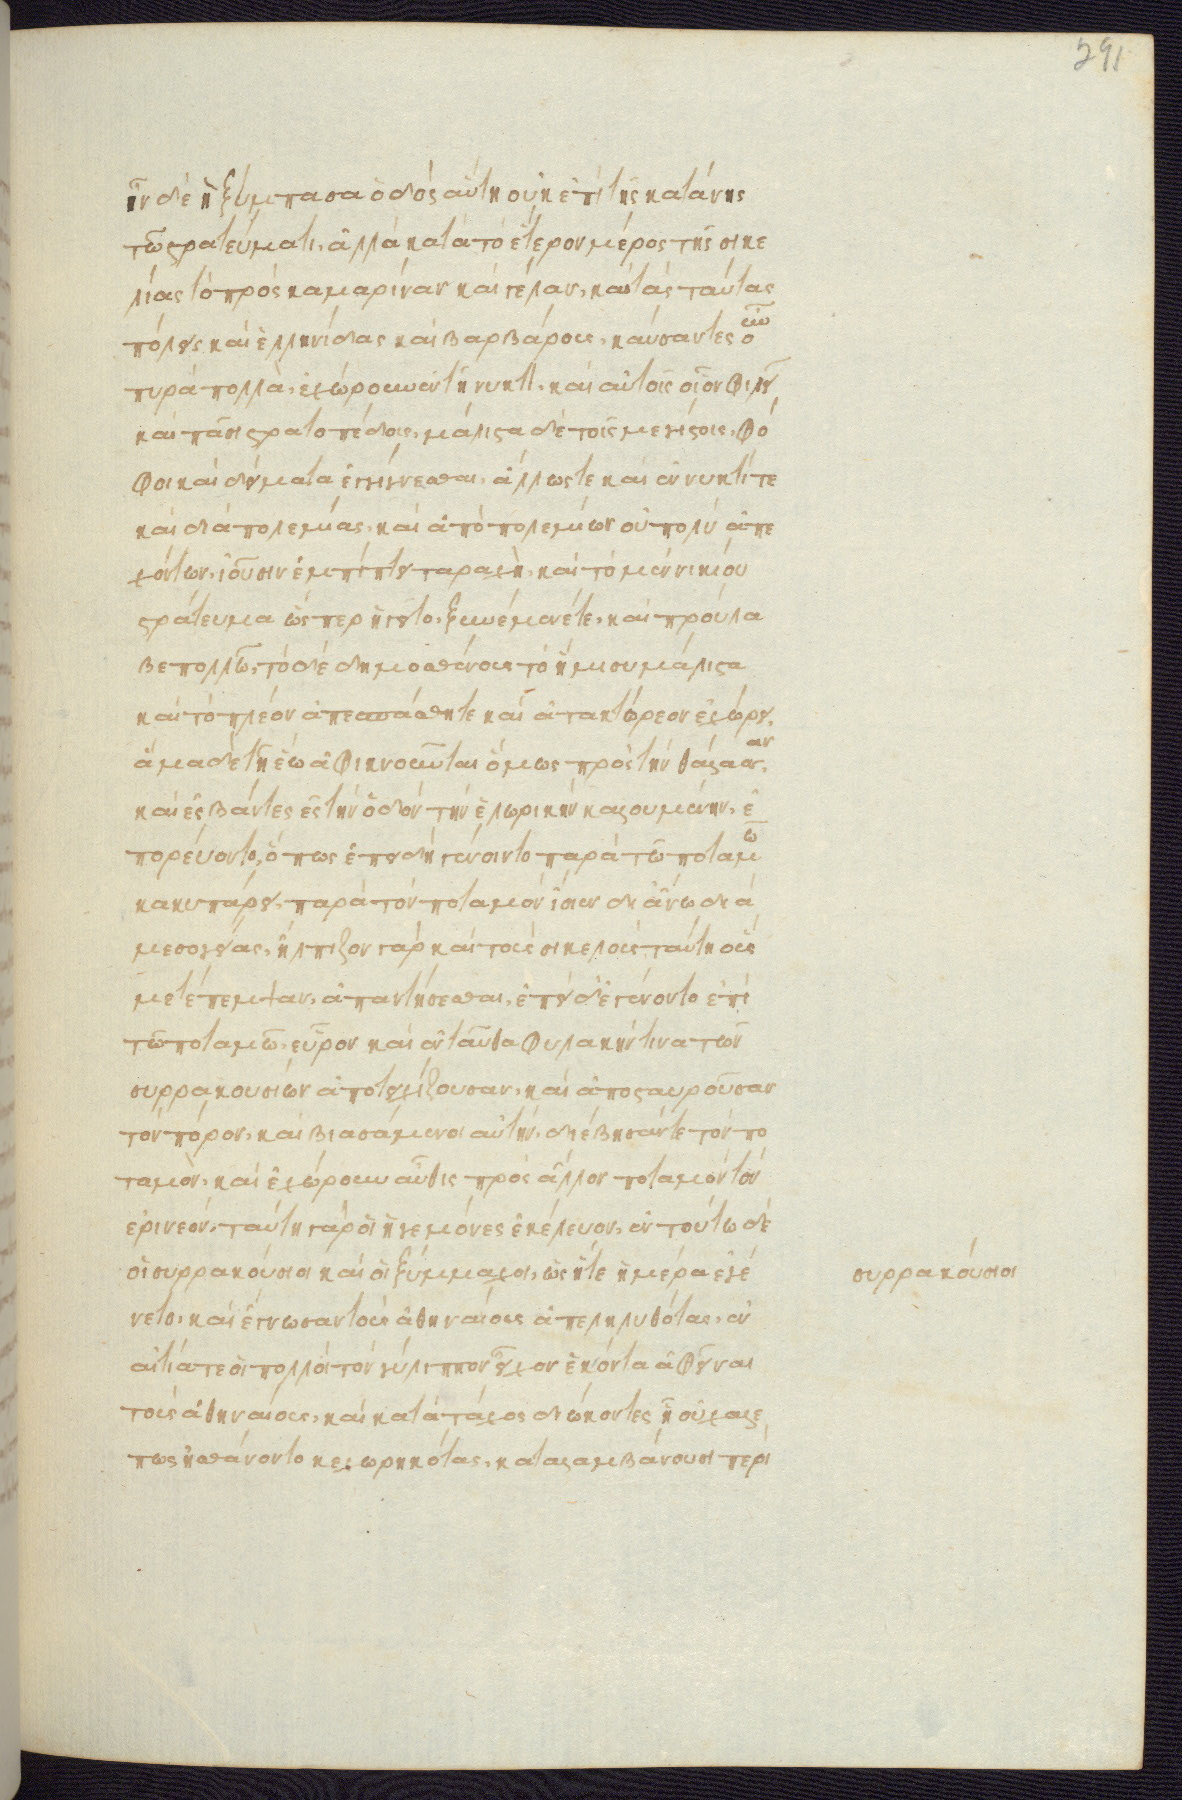 291
ἦν δὲ ἡ ξύμπασα ὁδὸς αὕτη οὐκ ἐπὶ τῆς κατάνης
τῶ στρατεύματι, ἀλλὰ κατὰ τὸ ἕτερον μέρος τῆς σικε
λίας τὸ πρὸς καμαρίναν καὶ γέλαν, καὶ τὰς ταύτας
πόλεις καὶ ἑλληνίδας καὶ βαρβάρους, καύσαντες οὖν
πυρὰ πολλὰ, ἐχώρουν ἐν τῆ νυκτὶ, καὶ αὐτοῖς οἷον φιλεῖ
καὶ πᾶσι στρατοπέδοις, μάλιστα δὲ τοῖς μεγίστοις, φό
φοι καὶ δείματα ἐγγίγνεσθαι, ἄλλως τε καὶ ἐν νυκτί τε
καὶ διὰ πολεμίας, καὶ ἀπὸ πολεμίων οὐ πολὺ ἀπε
χόντων, ἰοῦσιν ἐμπίπτει ταραχὴ, καὶ τὸ μὲν νικίου
στράτευμα ὥσπερ ἡγεῖτο, ξυνέμενέ τε, καὶ προύλα
βε πολλῶ, τὸ δὲ δημοσθένους τὸ ἥμισυ μάλιστα
καὶ τὸ πλέον ἀπεσπάσθη τε καὶ ἀτακτώρεον ἐχώρει,
ἅμα δὲ τῆ ἕω ἀφικνοῦνται ὅμως πρὸς τὴν θάλασσαν,
καὶ ἐσβάντες ἐς τὴν ὁδὸν τὴν ἑλωρικὴν καλουμένην, ἐ
πορεύοντο, ὅπως ἐπειδὴ γένοιντο παρὰ τῶ ποταμῶ
κακυπάρει, παρὰ τὸν ποταμὸν ἴοιεν ἄνω διὰ
μεσογείας, ἤλπιζον γὰρ καὶ τοὺς σικελοὺς ταύτη οὓς
μετέπεμψαν, ἀπαντήσεσθαι, ἐπειδὴ ἐγένοντο ἐπὶ
τῶ ποταμῶ, εὗρον καὶ ἐνταῦθα φυλακήν τινα τῶν
συρρακουσίων ἀποτειχίζουσαν, καὶ ἀποσταυροῦσαν
τὸν πόρον, καὶ βιασάμενοι αὐτὴν, διέβησάν τε τὸν πο
ταμὸν, καὶ ἐχώρουν αὖθις πρὸς ἄλλον ποταμὸν τὸν
ἐρινεόν, ταύτη γὰρ οἱ ἡγεμόνες ἐκέλευον, ἐν τούτω δὲ
οἱ συρρακούσιοι καὶ οἱ ξύμμαχοι, ὡς ἥ τε ἡμέρα ἐγέ
συρρακούσιοι
νετο, καὶ ἔγνωσαν τοὺς ἀθηναίους ἀπεληλυθότας, ἐν
αἰτία τε οἱ πολλοὶ τὸν γύλιππον εἶχον ἑκόντα ἀφεῖναι
τοὺς ἀθηναίους, καὶ κατὰ τάχος διώκοντες ἧ οὐ χαλε
πῶς ἠσθάνοντο κεχωρηκότας, καταλαμβάνουσι περὶ